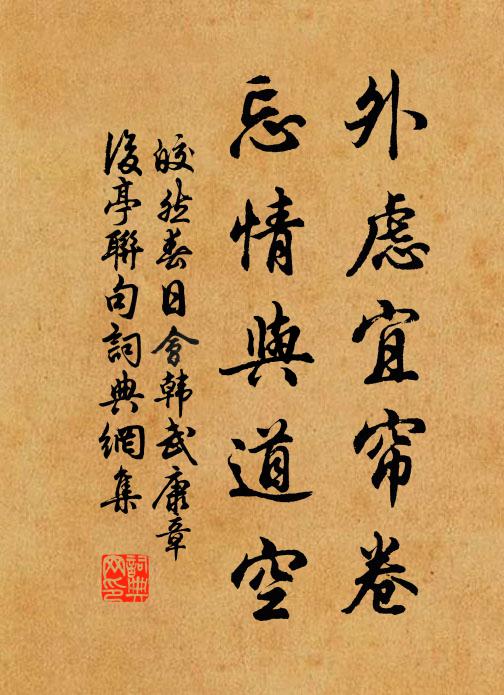 外慮宜帘卷
忘情與道空
皎然春日會韩武康章
後亭聯句詞典網集
詞典网印